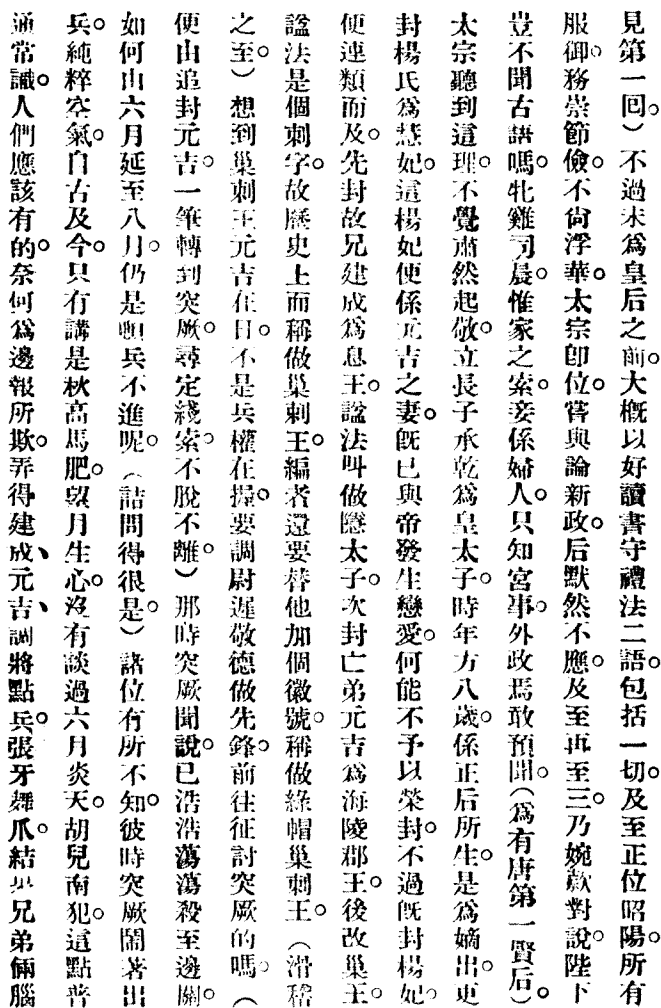 見第一回。）不過未爲皇后之前。大概以好讀書守禮法二語。包括一切。及至正位昭陽。所有
服御。務崇節儉。不尙浮華。太宗卽位。嘗與論新政。后默然不應。及至再至三。乃婉歎對說。陛下
豈不聞古語嗎。牝雞司晨。惟家之索。妾係婦人。只知宮事。外政焉敢預聞。（爲有唐第一賢后。）
太宗聽到這理。不覺肅然起敬。立長子承乾爲皇太子。時年方八歲。係正后所生。是爲嫡出。更
封楊氏爲慧妃。這楊妃便係元吉之妻。旣已與帝發生戀愛。何能不予以榮封。不過旣封楊妃。
便連類而及。先封故兄建成爲息王。諡法叫做隱太子。次封亡弟元吉爲海陵郡王。後改巢王。
諡法是個刺字。故歷史上而稱做巢刺王。編者還要替他加個徽號。稱做綠帽巢刺王。（滑稽
之至。）想到巢刺王元吉在日。不是兵權在握。要調尉遲敬德做先鋒。前往征討突厥的嗎。（
便由追封元吉。一筆轉到突厥。尋定綫索。不脫不離。）那時突厥聞說。已浩浩蕩蕩殺至邊關。
如何由六月延至八月。仍是頓兵不進呢。（詰問得很是。）諸位有所不知。彼時突厥鬧著出
兵。純粹空氣。自古及今。只有講是秋高馬肥。望月生心。沒有談過六月炎天。胡兒南犯。這點普
通常識。人們應該有的。奈何爲邊報所欺。弄得建成、元吉、調將點兵。張牙舞爪。結果兄弟倆腦